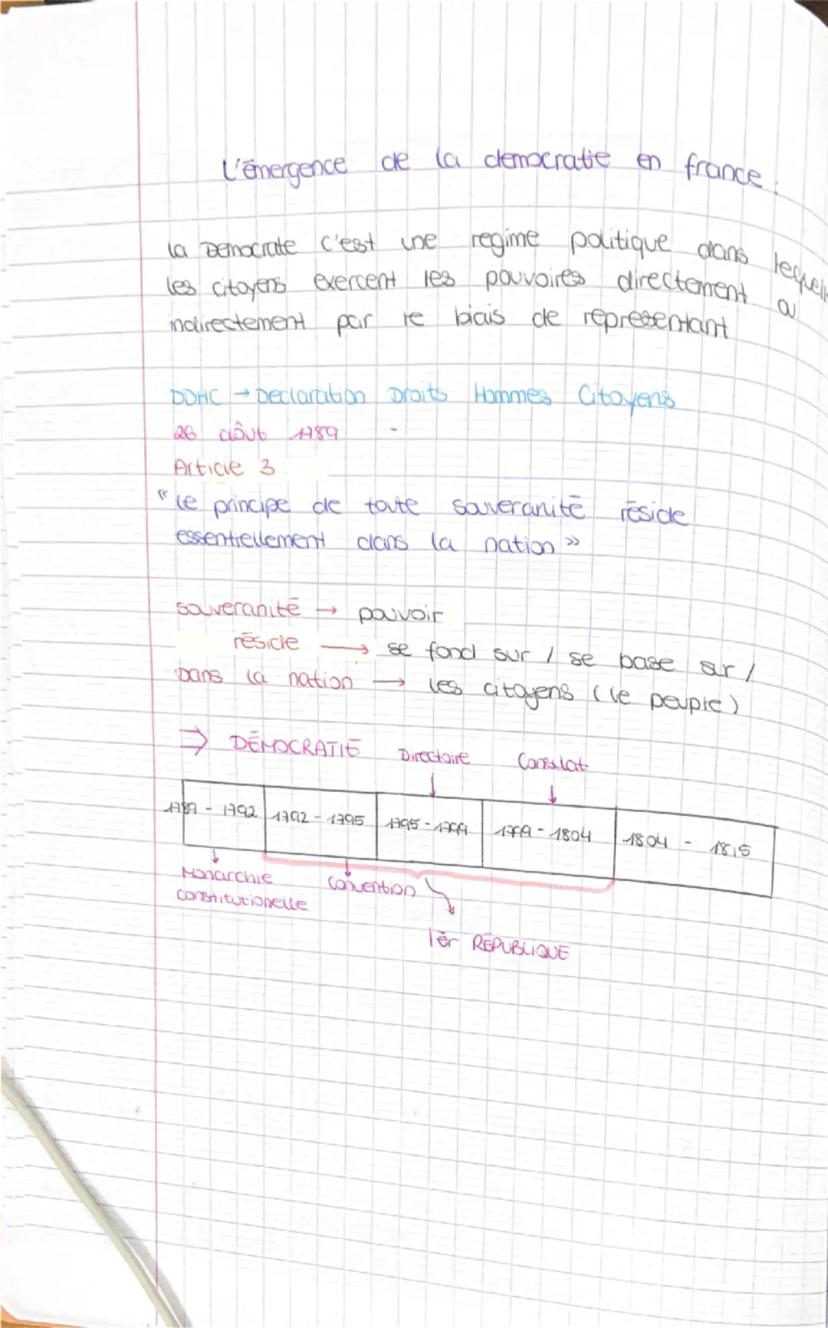 L'émergence de la democratie en france :
la Democrate c'est une regime politique dans lequel
les citoyens exercent les pouvoires directement
indirectement par le biais de representant
DDHC → Declaration Droits Hommes Citoyens
26 août 1789 -
Article 3
"le principe de toute souveranité réside
essentiellement dans la nation »
souveranité → pouvoir
réside → se fond sur / se base sur /
Dans la nation → les citoyens (le peuple)
⇒ DÉMOCRATIÉ Directoire Consulat
1789 - 1792 1792 - 1795 1795 - 1799 1799 - 1804 1804 - 1815
Monarchie Convention
constitutionelle
1èr RÉPUBLIQUE